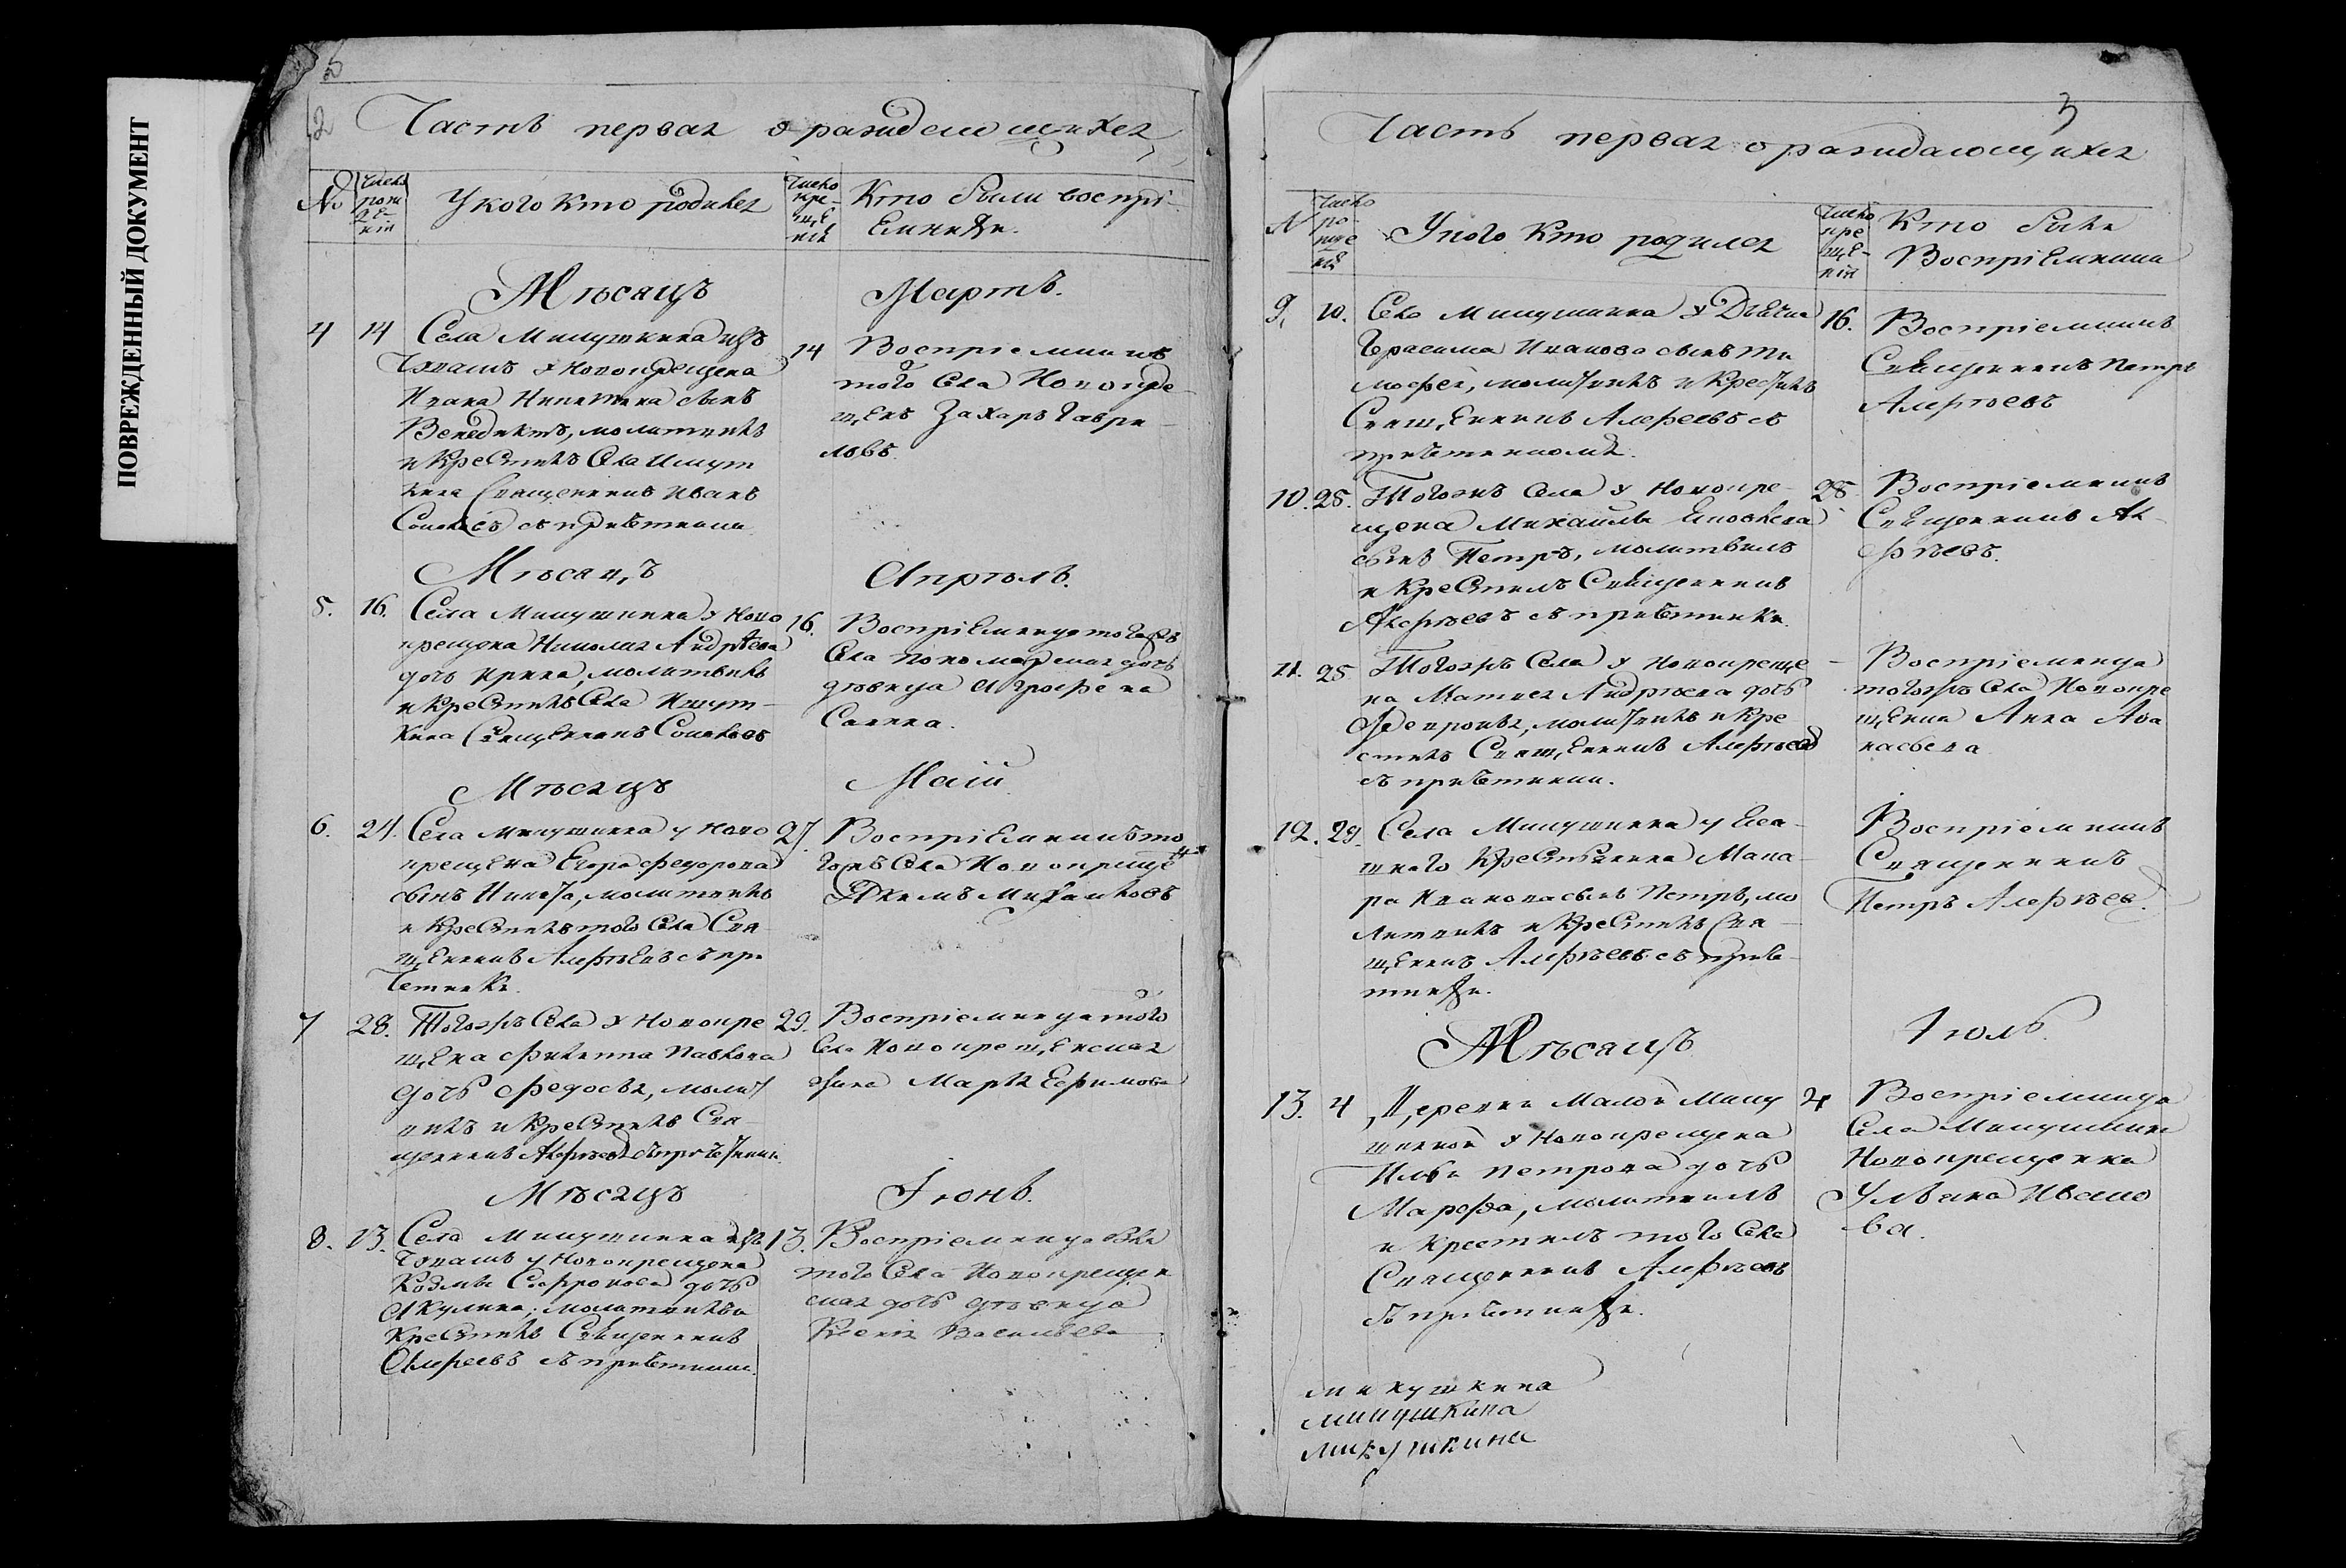 ПОВРЕЖДЕННЫЙ ДОКУМЕНТ
2 Часть первая о раждающихся
№ Число рождения У кого кто родился Число крещения Кто были воспріемники.
Мѣсяцъ Мартъ.
4 14 Села Микушкина изъ
Чувашъ у Новокрещена
Ивана Никитина сынъ
Венедиктъ, молитвилъ
и крестилъ села Ишут
кина Священникъ Иванъ
съ причетники
14 Воспріемникъ
того села Новокре
щенъ Захаръ Гаври
ловъ.
Мѣсяцъ Апрѣль.
5. 16. Села Микушкина у Ново
крещена Николая Андрѣева
дочь Ирина, молитвилъ
и крестилъ села Ишут
кина Священникъ
16. Воспріемница тогожъ
села пономарская дочь
дѣвица Агрофена
Савина.
Мѣсяцъ Маій
6. 24. Села Микушкина у Ново
крещена Егора Федорова
сынъ Никита, молитвилъ
и крестилъ того села Свя
щенникъ Алефѣевъ съ при
четники.
27. Воспріемникъ то
гожъ села Новокреще
Якимъ Михайловъ
7 28. Тогожъ села у Новокре
щена Филиппа Павлова
дочь Федосья, молит
вилъ и крестилъ Свя
щенникъ Алефѣевъ съ причетники.
29. Воспріемница того
села Новокрещенская
жена Марья Ефимова
Мѣсяцъ Іюнь.
8. 13. Села Микушкина изъ
Чувашъ у Новокрещена
Козмы Сафронова дочь
Акулина; молитвилъ и
крестилъ Священникъ
Алефеевъ съ причетники.
13. Воспріемница была
того села Новокрещен
ская дочь дѣвица
Ксенія Васильева
3
Часть первая о раждающихся
№ Число рожденія У кого кто родился Число крещенія Кто были Воспріемники
9. 10. Села Микушкина у Дьячка
Герасима Иванова сынъ Ти
мофей, молитвилъ и крестилъ
Священникъ Алефеевъ съ
16. Воспріемникъ
Священникъ Петръ
Алефѣевъ
10. 25. Тогожъ села у Новокре
щена Михайлы
сынъ Петръ, молитвилъ
и крестилъ Священникъ
Алефѣевъ съ причетники.
25. Воспріемникъ
Священникъ Але
фѣевъ.
11. 25 Тогожъ села у Новокреще
на Матвея Андрѣева дочь
Февронья, молитвилъ и кре
стилъ Священникъ Алефѣевъ
съ причетники.
Воспріемница
тогожъ села Новокре
щенка Анна Афа
насьева
12. 29. Села Микушкина у
крестьянина Мака
ра Иванова сынъ Петръ, мо
литвилъ и крестилъ Свя
щенникъ Алефѣевъ съ приче
тники.
Воспріемникъ
Священникъ
Петръ Алефѣевъ.
Мѣсяцъ Іюль
13. 4 Деревни Малой Мику
шкиной у Новокрещена
Ильи Петрова дочь
Марфа, молитвилъ
и крестилъ того села
Священникъ Алефѣевъ
съ причетники.
4 Воспріемница
села Микушкина
Новокрещенка
Ульяна Ивано
ва.
микушкина
микушкина
микушкина